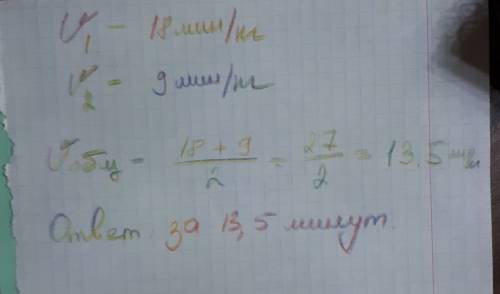 V₁ - 18 мин/кг
V₂ = 9 мин/кг
Vобщ = (18 + 9)/2 = 27/2 = 13,5 мин
Ответ: за 13,5 минут.